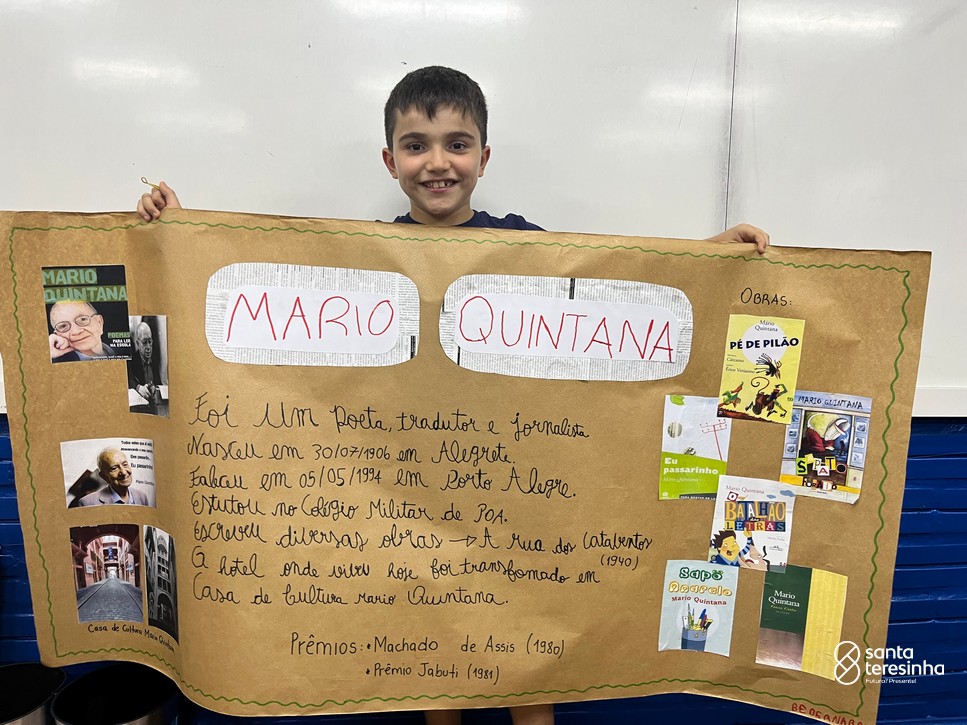 MARIO QUINTANA
Foi Um Poeta, tradutor e jornalista
Nasceu em 30/07/1906 em Alegrete.
Faleceu em 05/05/1994 em Porto Alegre.
Estudou no Colégio Militar de POA.
Escreveu diversas obras → A rua dos Cataventos
(1940)
O hotel onde viveu hoje foi transfomado em
Casa de Cultura mario Quintana.
Prêmios: • Machado de Assis (1980)
• Prêmio Jabuti (1981)
MARIO
QUINTANA
POEMAS
PARA LER
NA ESCOLA
Eu passarinho
Casa de Cultura Mario Quintana
OBRAS:
Mario
Quintana
PÉ DE PILÃO
Eu
passarinho
MARIO QUINTANA
Mario Quintana
BATALHÃO
DAS
LETRAS
Sapo
Amarelo
Mario Quintana
Mario
Quintana
santa
teresinha
Futuro? Presente!